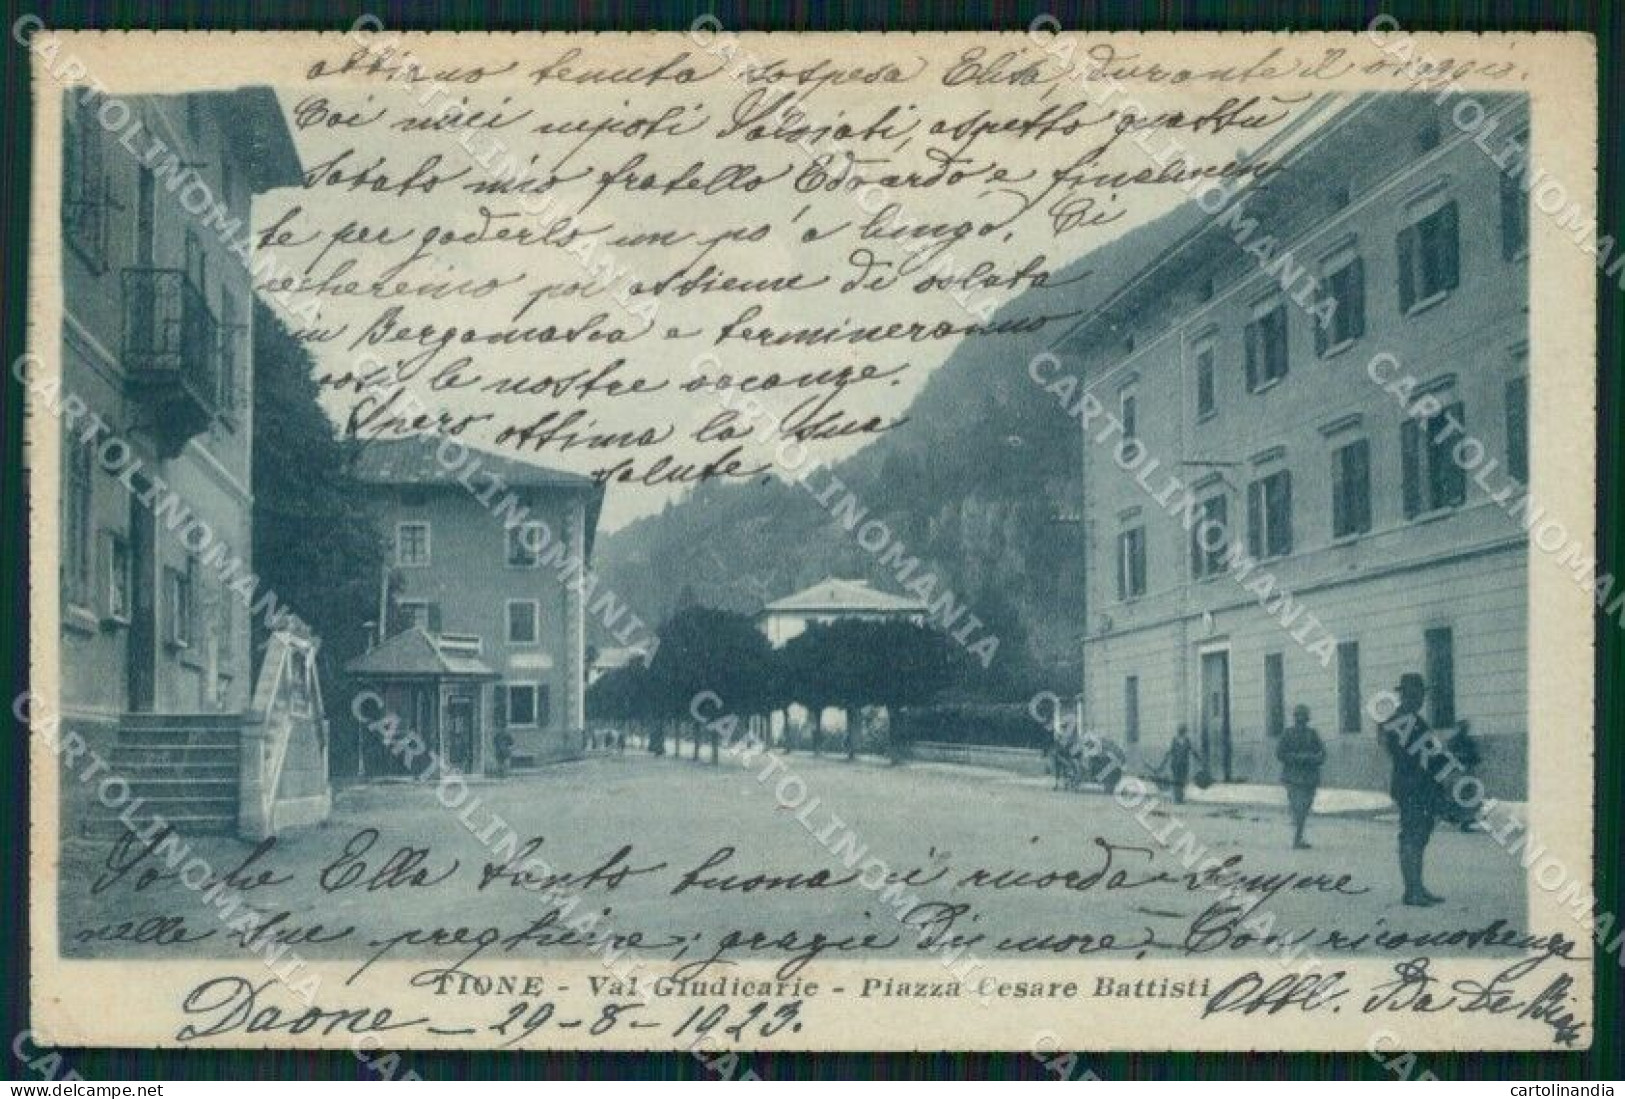 abbiamo tenuta sospesa Elisa, durante il viaggio.
Coi miei nipoti Salviati, aspetto quassù
sabato mio fratello Edoardo e finalmen
te per goderlo un po' a lungo. Ci
recheremo poi assieme di volata
in Bergamasca e termineranno
così le nostre vacanze.
Spero ottima la sua
salute.
So che Ella tanto buona mi ricorda sempre
nelle Sue preghiere; grazie di cuore. Con riconoscenza
Obbl. Ida De
TIONE - Val Giudicarie - Piazza Cesare Battisti
Daone - 29-8-1923.
CARTOLINOMANIA
cartolinandia